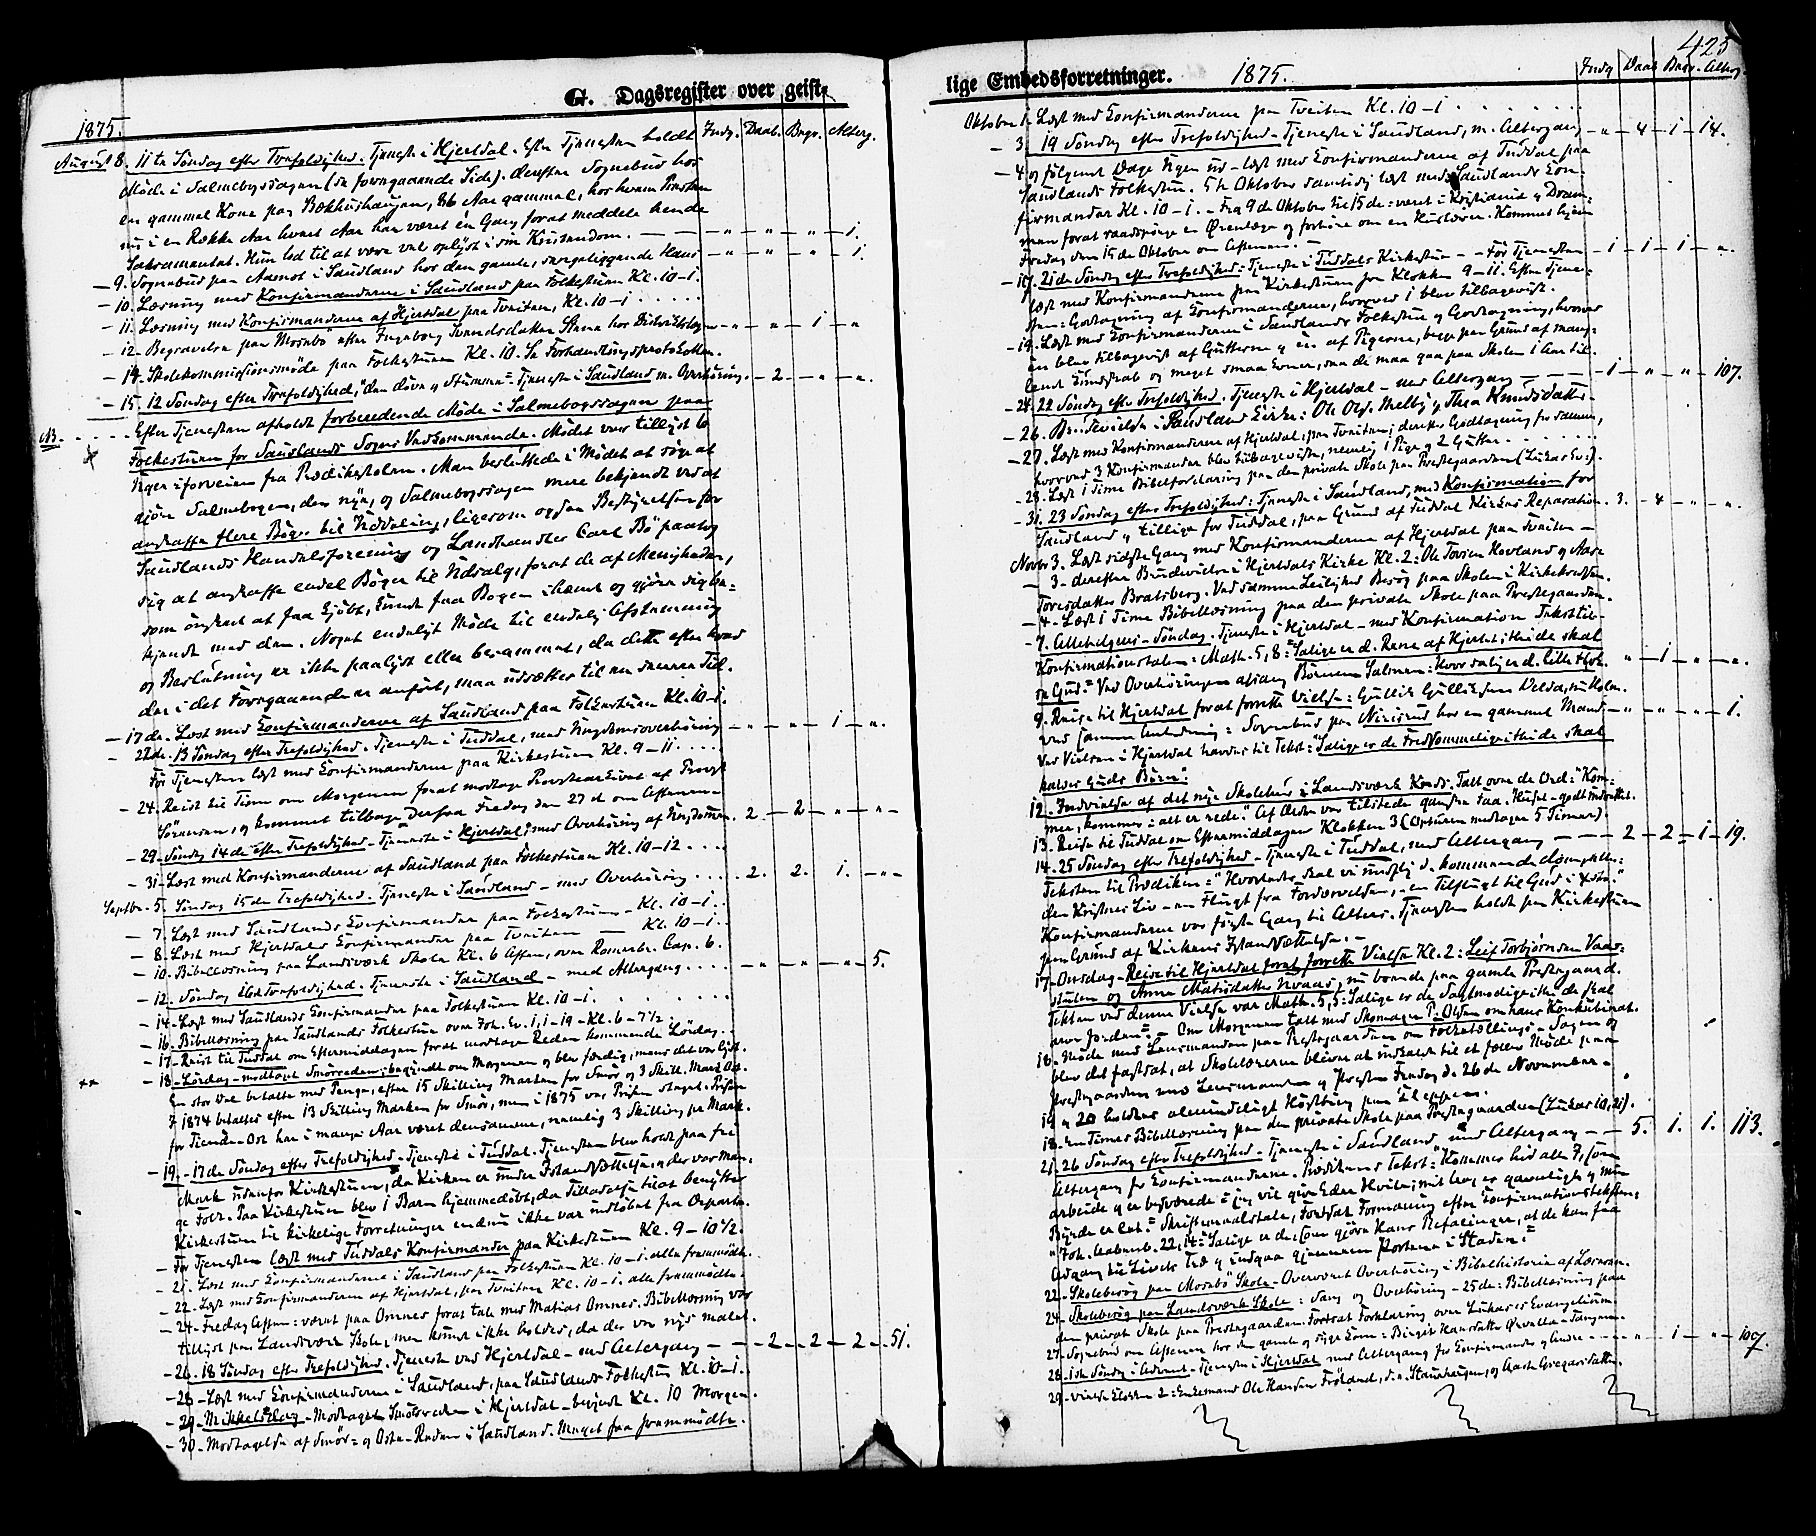 G. Dagsregister over geist-
1875.
Indg. Daab. Begr. Alterg.
August 8. 11te Søndag efter Trefoldighed. Tjeneste i Hjertdal. Efter Tjenesten holdt
Møde i Salmebogssagen (se foregaaende Side). Derefter Sognebud hos
en gammel Kone paa Bækhushaugen, 86 Aar gammel, hos hvem Presten
nu i en Række Aar hvert Aar har været én Gang forat meddele hende
Sakramentet. Hun lod til at være vel oplyst i sin Kristendom. — " — " — " — 1.
— 9. Sognebud paa Aamot i Saudland hos den gamle, sengeliggende Hans — " — " — " — 1.
— 10. Læsning med Konfirmanderne i Saudland paa Folkestuen Kl. 10-1.
— 11. Læsning med Konfirmanderne af Hjertdal paa Tveiten, Kl. 10-1 . . . .
— 12. Begravelse paa Mosebø efter Ingeborg Svendsdatter — " — " — 1 — "
— 14. Skolekommissionsmøde paa Folkestuen Kl. 10. Se Forhandlingsprotokollen.
— 15. 12 Søndag efter Trefoldighed, "den døve og stumme" Tjeneste i Saudland m. Overhøring. — 2 — " — ".
NB. . . . . Efter Tjenesten afholdt forberedende Møde i Salmebogssagen paa
Folkestuen for Saudlands Sogns Vedkommende. Mødet var tillyst 6
Uger iforveien fra Prædikestolen. Man besluttede i Mødet at søge at
gjøre Salmebogen, den nye, og Salmebogssagen mere bekjendt ved at
anskaffe flere Bøger til Uddeling, ligesom ogsaa Bestyrelsen for
Saudlands Handelsforening og Landhandler Carl Bø paatog
sig at anskaffe endel Bøger til Udsalg, forat de af Menigheden,
som ønsket at faa kjøbt, kunde faa Bogen ihænde og gjøre sig be-
kjendt med den. Noget endeligt Møde til endelig Afstemning
og Beslutning er ikke paalyst eller berammet, da dette efter hvad
der i det Foregaaende er anført, maa udsættes til en senere Tid.
— 17de. Læst med Konfirmanderne af Saudland paa Folkestuen Kl. 10-1.
— 22de. 13 Søndag efter Trefoldighed. Tjeneste i Tuddal, med Ungdomsoverhøring — " — " — 1 — ".
Før Tjenesten læst med Konfirmanderne paa Kirkestuen Kl. 9-11 . . . .
— 24. Reist til Tinn om Morgenen forat modtage Provstearkivet af Provst
Sørensen, og kommet tilbage derfra Fredag den 27de om Aftenen
— 29. Søndag 14de efter Trefoldighed. Tjeneste i Hjertdal med Overhøring af Ungdommen. 2 — 2 — " — " —
— 31. Læst med Konfirmanderne af Saudland paa Folkestuen Kl. 10-12 . . . .
Septbr. 5. Søndag 15de Trefoldighed. Tjeneste i Saudland — med Overhøring . . . . 2. 2. 1. — " —
— 7. Læst med Saudlands Konfirmander paa Folkestuen — Kl. 10-1 . .
— 8. Læst med Hjertdals Konfirmander paa Tveiten — Kl. 10-1 .
— 10. Bibellæsning paa Landsværk Skole Kl. 6 Aften, over Romerbr. Cap. 6.
— 12. Søndag 16de Trefoldighed. Tjeneste i Saudland — med Altergang . . . . — " — " — " — 5.
— 14. Læst med Saudlands Konfirmander paa Folkestuen Kl. 10-1 . . . .
— 16. Bibellæsning paa Saudlands Folkestue over Joh. Ev. 1, 1-19 — Kl. 6-7½ . .
— 17. Reist til Tuddal om Eftermiddagen forat modtage Reden kommende Lørdag.
— 18. Lørdag — modtaget Smørreden; begyndt om Morgenen og blev færdig, mens det var lyst.
En stor Del betalte med Penge, efter 15 Skilling Marken for Smør og 3 Skill. Mark Ost.
I 1874 betaltes efter 13 Skilling Marken for Smør, men i 1875 var Prisen steget. Prisen
for Tiende-Ost har i mange Aar været densamme, nemlig 3 Skilling pr Mark.
— 19. 17de Søndag efter Trefoldighed — Tjeneste i Tuddal. Tjenesten blev holdt paa fri
Mark udenfor Kirkestuen, da Kirken er under Istandsættelse, og der var man-
ge Folk. Paa Kirkestuen blev 1 Barn hjemmedøbt, da Tilladelse til at benytte
Kirkestuen til kirkelige Forretninger endnu ikke var indløbet fra Departe.
— Før Tjenesten læst med Tuddals Konfirmander paa Kirkestuen Kl. 9-10½.
— 21. Læst med Konfirmanderne i Saudland paa Folkestuen Kl. 10-1. alle fremmødte.
— 22. Læst med Konfirmanderne af Hjertdal, paa Tveiten Kl. 10-1. alle fremmødte.
— 24. Fredag Aften: været paa Omnes forat tale med Matias Omnes. Bibellæsning var
tillyst paa Landsværk Skole, men kunde ikke holdes, da der var nys malet.
— 26. 18 Søndag efter Trefoldighed. Tjeneste ved Hjertdal — med Altergang — — 2 — 2 — 2 — 51.
— 28. Læst med Konfirmanderne i Saudland, paa Saudlands Folkestue Kl. 10-1.
— 29. Mikkelsdag — Modtaget Smørreden i Hjertdal — begyndt Kl. 10 Morgen.
— 30. Modtagelse af Smør- og Oste-Reden i Saudland. Meget faa fremmødte.
lige Embedsforretninger. 1875.
423
Indg Daab Begr. Alterg
Oktober 1. Læst med Konfirmanderne paa Tveiten Kl. 10-1 . . . . . .
— 3. 19 Søndag efter Trefoldighed — Tjeneste i Saudland, m. Altergang — " — 4 — 1 — 14.
— 4 og følgende Dage Ugen ud — læst med Konfirmanderne af Tuddal paa
Saudlands Folkestue. 5te Oktober samtidig læst med Saudlands Kon-
firmander Kl. 10-1. — Fra 9de Oktober til 15de: været i Kristiania og Dram-
men forat raadspørge en Ørenlæge og forhøre om en Huslærer. Kommet hjem
Fredag den 15de Oktober om Aftenen. —
— 17. 21de Søndag efter Trefoldighed: Tjeneste i Tuddals Kirkestue — — Før Tjenesten — 1 — 1 — 1 — ".
læst med Konfirmanderne paa Kirkestuen fra Klokken 9-11. Efter Tjene-
sten: Godtagning af Konfirmanderne, hvorved 1 blev tilbagevist.
— 19. Læst med Konfirmanderne i Saudlands Folkestue og Godtagning, hvorved
én blev tilbagevist af Gutterne og én af Pigerne, begge paa Grund af mang-
lende Kundskab og meget smaa Evner, saa de maa gaa paa Skolen i Aar til.
— 24. 22 Søndag efter Trefoldighed. Tjeneste i Hjertdal — med Altergang — — — 1 — " — " — 107.
— 26. Brudevielse i Saudland Kirke: Ole Ols. Melby og Thea Knudsdatter
— 27. Læst med Konfirmanderne af Hjertdal, paa Tveiten; derefter Godtagning for samme,
hvorved 3 Konfirmander blev tilbageviste, nemlig 1 Pige og 2 Gutter . . . . . .
— 28. Læst 1 Time Bibelforklaring paa den private Skole paa Prestegaarden (Lukas Ev.).
— 31. 23 Søndag efter Trefoldighed: Tjeneste i Saudland, med Konfirmation for
Saudland og tillige for Tuddal, paa Grund af Tuddal Kirkes Reparation. 3. — 4 — " — ".
Novbr 3. Læst sidste Gang med Konfirmanderne af Hjertdal paa Tveiten —
— 3 — derefter Brudevielse i Hjertdals Kirke Kl. 2: Ole Torsen Hovland og Aase
Toresdatter Bratsberg. Ved samme Leilighed Besøg paa Skolen i Kirkekredsen.
— 4 — Læst 1 Time Bibellæsning paa den private Skole paa Prestegaarden.
— 7. Allehelgens-Søndag. Tjeneste i Hjertdal — med Konfirmation. Tekst til
Konfirmationstalen: Math. 5, 8: "Salige er d. Rene af Hjertet; thi de skal
se Gud." Ved Overhøringen afsang Børnene Salmen: Hvor salig er d. lille Flok. " — 1 — " — ".
9. Reise til Hjertdal forat forrette Vielse: Gullik Gulliksen
ved samme Anledning: Sognebud paa Nirisrud hos en gammel Mand — " — " — " — 1.
Ved Vielsen i Hjertdal havdes til Tekst: "Salige er de Fredsommelige; thi de skal
kaldes Guds Børn".
12. Indvielse af det nye Skolehus i Landsværk Kreds. Talt over de Ord: "Kom-
mer, kommer: alt er rede". Af Ældre var tilstede ganske Faa. Huset — godt indrettet.
13. Reise til Tuddal om Eftermiddagen Klokken 3 (Opturen medtager 5 Timer).
14. 25 Søndag efter Trefoldighed — Tjeneste i Tuddal, med Altergang — — — 2 — 2 — 1 — 19.
Teksten til Prædiken: "Hvorledes skal vi undfly d. kommende Dom", eller:
den Kristnes Liv — en Flugt fra Fordærvelsen, — en Tilflugt til Gud i Kristo."
Konfirmanderne var første Gang til Alters. Tjenesten holdt paa Kirkestuen
paa Grund af Kirkens Istandsættelse. —
17. Onsdag — Reise til Hjertdal forat forrette Vielse Kl. 2: Leif Torbjørnsen Vaas-
stulen og Anne Matisdatter Kvaas, nu boende paa gamle Prestegaard.
Teksten ved denne Vielse var Math. 5, 5: Salige er de Sagtmodige; thi de skal
arve Jorden". — Om Morgenen talt med Skomager P. Olsen om hans Konkubinat.
18. Møde med Lensmanden paa Prestegaarden om Folketællings-Sagen og
blev det fastsat, at Skolelærerne bliver at indkalde til et fælles Møde paa
Prestegaarden med Lensmanden og Presten Fredag d. 26de November. —
19 & 20 holdtes almindeligt Høstting paa Uleppen.
18. En Times Bibellæsning paa den private Skole paa Prestegaarden (Lukas 10, 21).
21. 26 Søndag efter Trefoldighed — Tjeneste i Saudland, med Altergang — — 5. 1. 1. 113.
Altergang for Konfirmanderne. Prædikenens Tekst: "Kommer hid alle I, som
arbeide og er besværede; jeg vil give Eder Hvile; mit Aag er gavnligt og min
Byrde er let." Skriftemaalstale, Fortsat Formaning efter Konfirmationsteksten,
"Joh. Aabenb. 22, 14: Salige er de, som gjøre Hans Befalinger, at de kan faa
Adgang til Livets Træ og indgaa gjennem Portene i Staden."
22. Skolebesøg paa Mosebø Skole — Overværet Overhøring i Bibelhistorie af Læreren.
24. Skolebesøg paa Landsværk Skole: Sang og Overhøring — 25de: Bibellæsning paa
den privat Skole paa Prestegaarden. Fortsat Forklaring over Lukas's Evangelium.
27. Sognebud om Aftenen hos den gamle og syge Kone: Birgit Hansdatter
28. 1ste Søndag i Advent — Tjeneste i Hjertdal med Altergang for Konfirmander og Andre — — " — 1 — " — 107.
29. Vielse Klokken 2: Enkemand Ole Hansen Frøland, og Aaste Gregarsdatter.